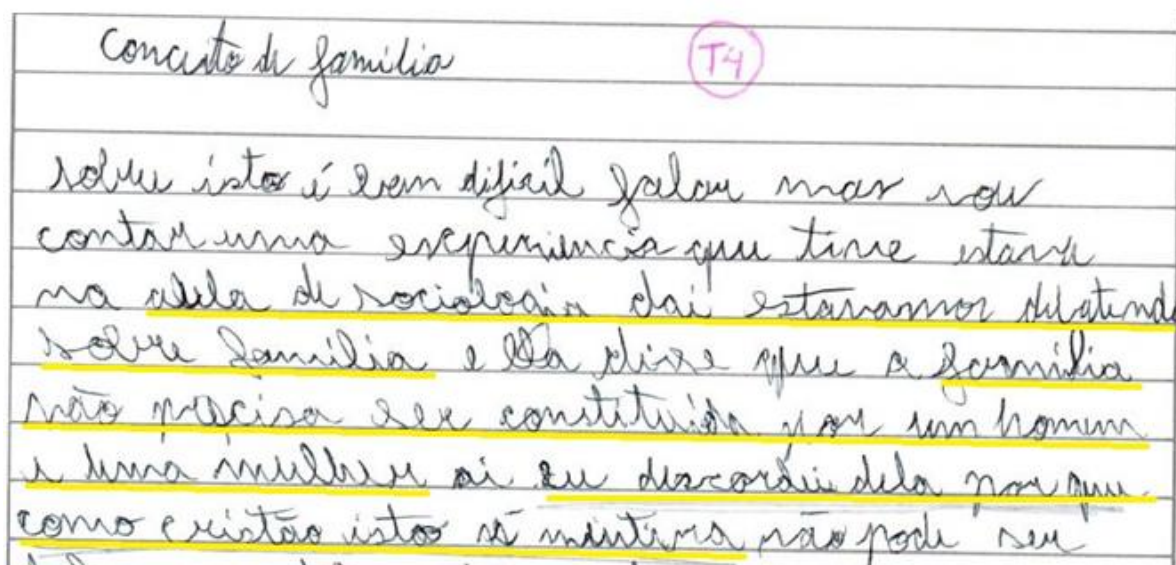 Conceito de família
T4
sobre isto é bem difícil falar mas vou
contar uma experiencia que tive estava
na aula de sociologia dai estavamos debatend
sobre família e Ela disse que a família
não precisa ser constituída por um homem
e uma mulher ai eu descordei dela por que
como cristão isto é mintira não pode ser